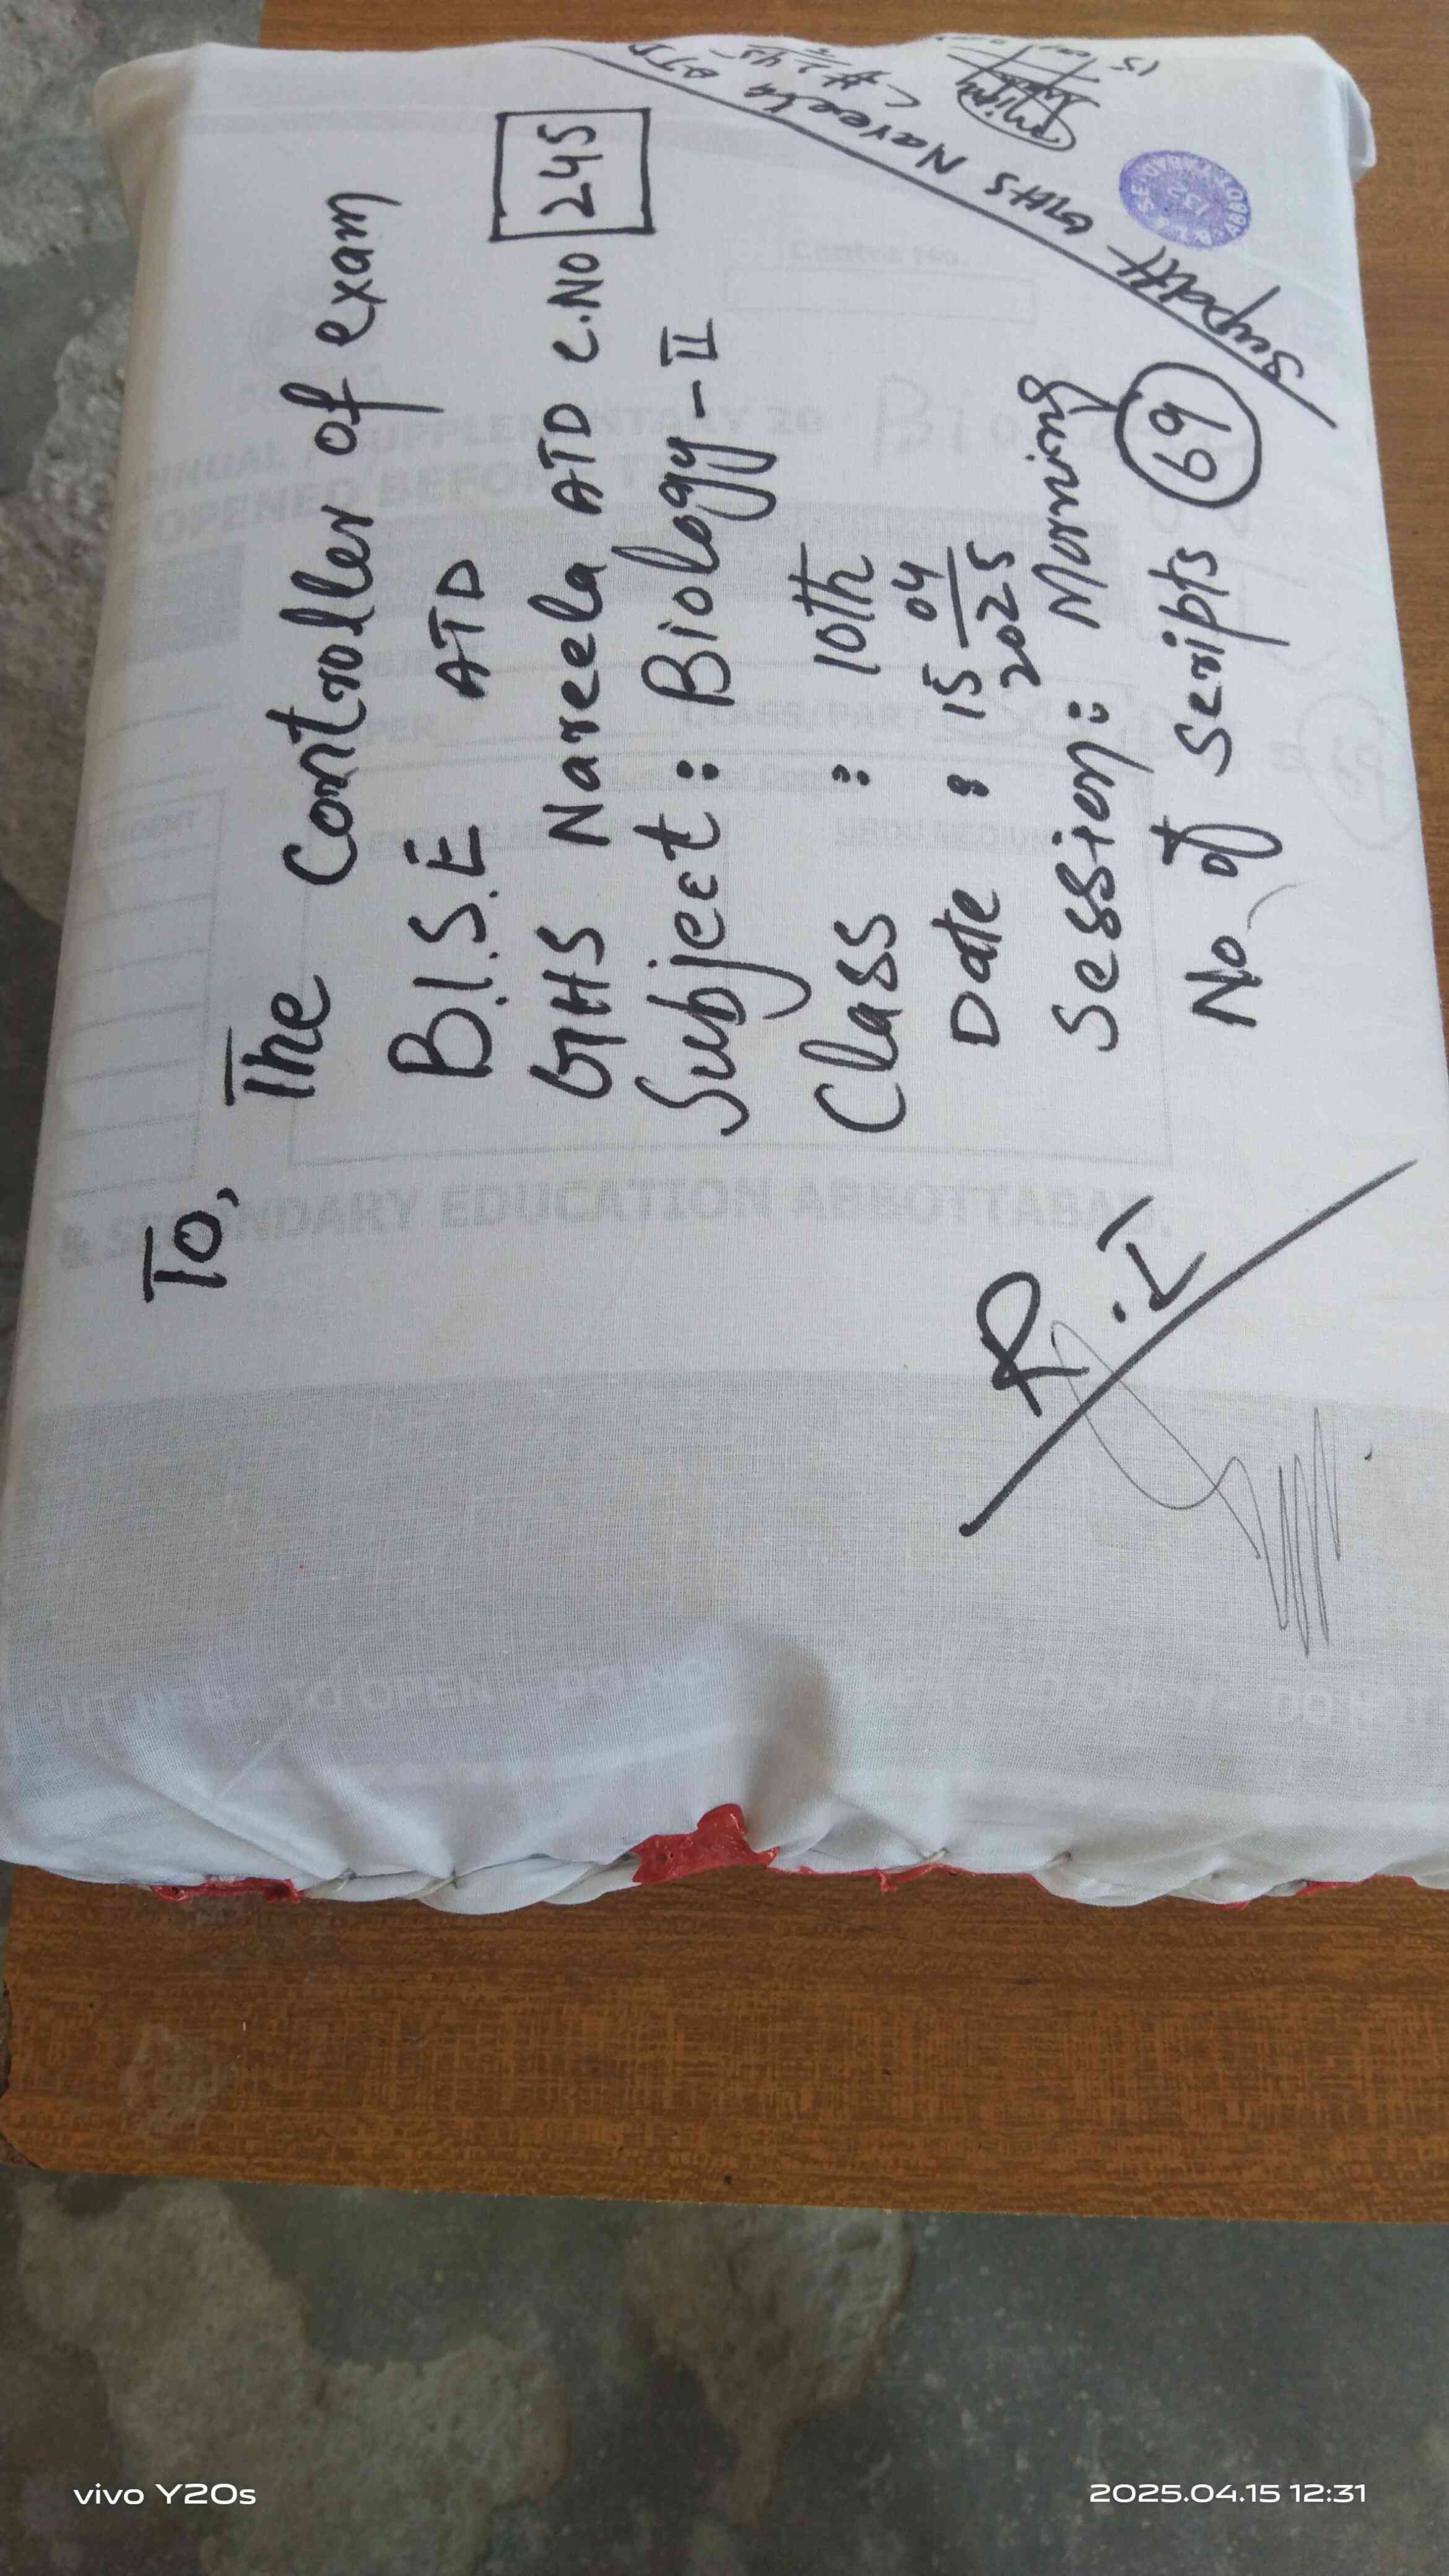 To,
The Controller of exam
B.I.S.E ATD
GHS Nareela ATD C.No 245
Subject: Biology-II
Class : 10th
Date : 15/04/2025
Session: Morning
No of Scripts 69
R.I
Supdtt GHS Nareela ATD
C# 245
& SECONDARY EDUCATION ABBOTTABAD.
OPENED BEFORE
Centre No.
CLASS/PART
TO OPEN
DO NOT
vivo Y20s
2025.04.15 12:31